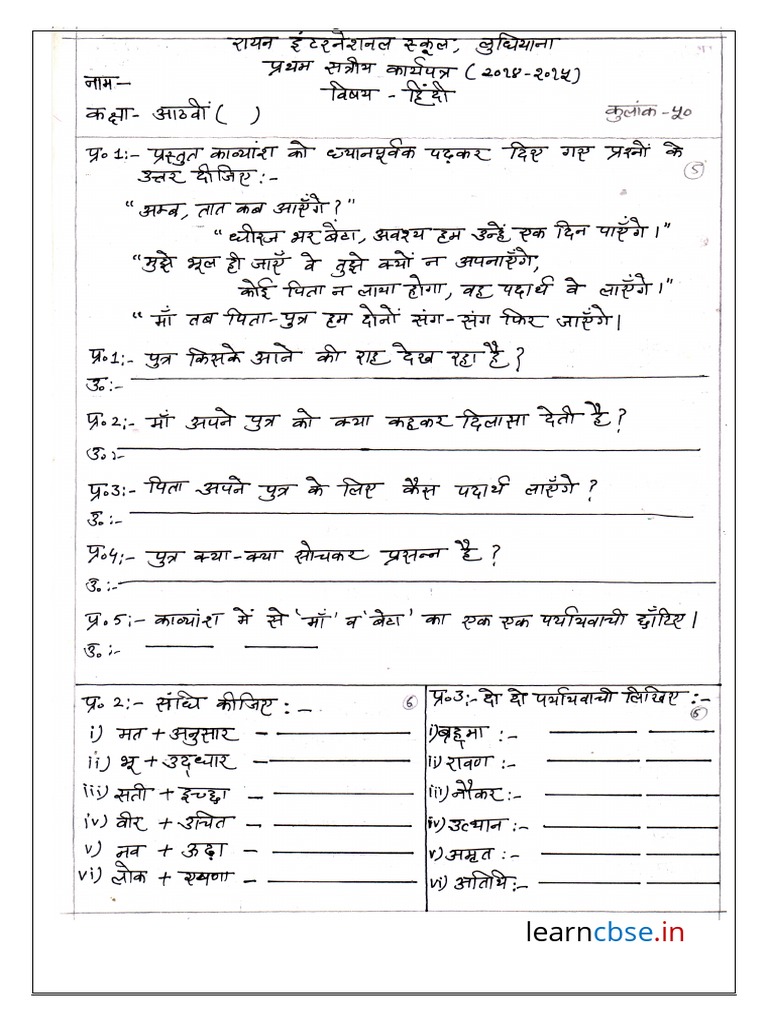 रायन इंटरनेशनल स्कूल, लुधियाना
प्रथम सत्रीय कार्यपत्र (२०१४-२०१५)
नाम:-
विषय - हिंदी
कक्षा- आठवीं ( )
कुलांक -५०
प्र॰1:- प्रस्तुत काव्यांश को ध्यानपूर्वक पढ़कर दिए गए प्रश्नों के
उत्तर दीजिए:-
5
"अम्ब, तात कब आएँगे?"
"धीरज धर बेटा, अवश्य हम उन्हें एक दिन पाएँगे।"
"मुझे भूल ही जाएँ वे तुझे क्यों न अपनाएँगे,
कोई पिता न लाया होगा, वह पदार्थ वे लाएँगे।"
"माँ तब पिता-पुत्र हम दोनों संग-संग फिर जाएँगे।
प्र॰1:- पुत्र किसके आने की राह देख रहा है?
उ॰:-
प्र॰2:- माँ अपने पुत्र को क्या कहकर दिलासा देती है?
उ॰:-
प्र॰3:- पिता अपने पुत्र के लिए कैस पदार्थ लाएँगे?
उ॰:-
प्र॰4:- पुत्र क्या-क्या सोचकर प्रसन्न है?
उ॰:-
प्र॰5:- काव्यांश में से 'माँ' व 'बेटा' का एक एक पर्यायवाची छाँटिए।
उ॰:-
प्र॰2:- संधि कीजिए:- 6
i) मत + अनुसार -
ii) भू + उद्धार -
iii) सती + इच्छा -
iv) वीर + उचित -
v) नव + ऊढ़ा -
vi) लोक + एषणा -
प्र॰3:- दो दो पर्यायवाची लिखिए:-
6
i) ब्रह्मा :-
ii) रावण :-
iii) नौकर:-
iv) उत्थान :-
v) अमृत :-
vi) अतिथि:-
learncbse.in